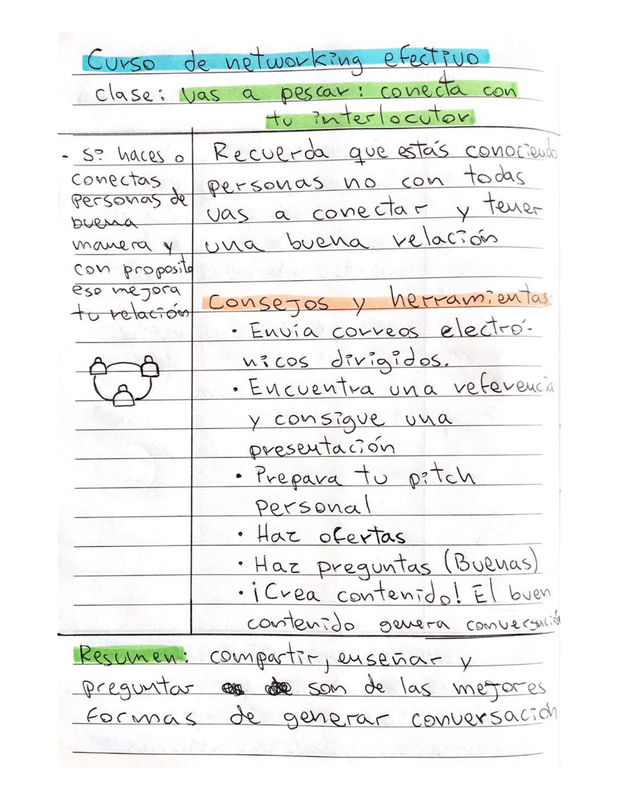 Curso de networking efectivo
clase: Vas a pescar: conecta con
tu interlocutor
- Si haces o
conectas
personas de
buena
manera y
con proposito
eso mejora
tu relación
Recuerda que estás conociendo
personas no con todas
vas a conectar y tener
una buena relación
Consejos y herramientas:
• Envía correos electró-
nicos dirigidos.
• Encuentra una referencia
y consigue una
presentación
• Prepara tu pitch
personal
• Haz ofertas
• Haz preguntas (Buenas)
• ¡Crea contenido! El buen
contenido genera conversación
Resumen: compartir, enseñar y
preguntar son de las mejores
formas de generar conversación